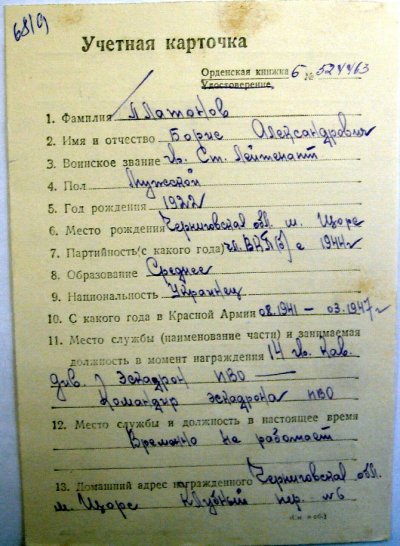 6819
Учетная карточка
Орденская книжка Б № 524463
Удостоверение
1. Фамилия Платонов
2. Имя и отчество Борис Александрович
3. Воинское звание гв. Ст. Лейтенант
4. Пол Мужской
5. Год рождения 1922
6. Место рождения Черниговская обл. м. Щорс
7. Партийность (с какого года) чл. ВКП(б) с 1944 г
8. Образование Среднее
9. Национальность Украинец
10. С какого года в Красной Армии 08.1941 — 03.1947 г
11. Место службы (наименование части) и занимаемая
должность в момент награждения 14 гв. Кав.
див. Эскадрон ПВО —
Командир эскадрона ПВО
12. Место службы и должность в настоящее время
Временно не работает
13. Домашний адрес награжденного Черниговская обл.
м. Щорс Клубный пер. №6